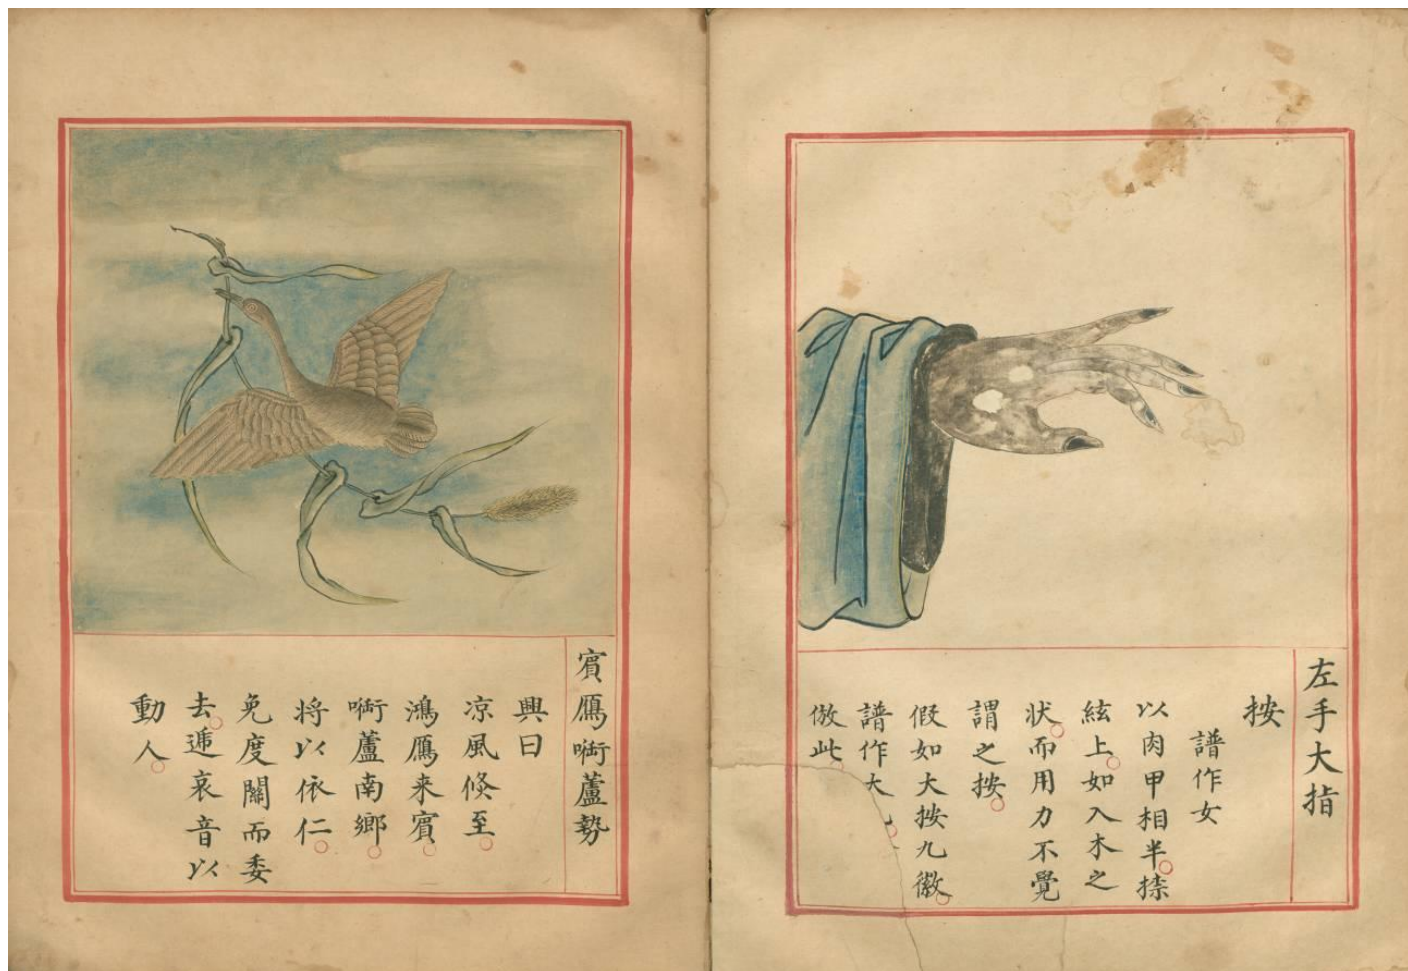 左手大指
按
譜作女
以肉甲相半捺
絃上如入木之
狀而用力不覺
謂之按
假如大按九徽
譜作大
倣此
賓鴈啣蘆勢
興曰
凉風倐至
鴻鴈来賓
啣蘆南鄉
将以依仁
免度關而委
去遞哀音以
動人